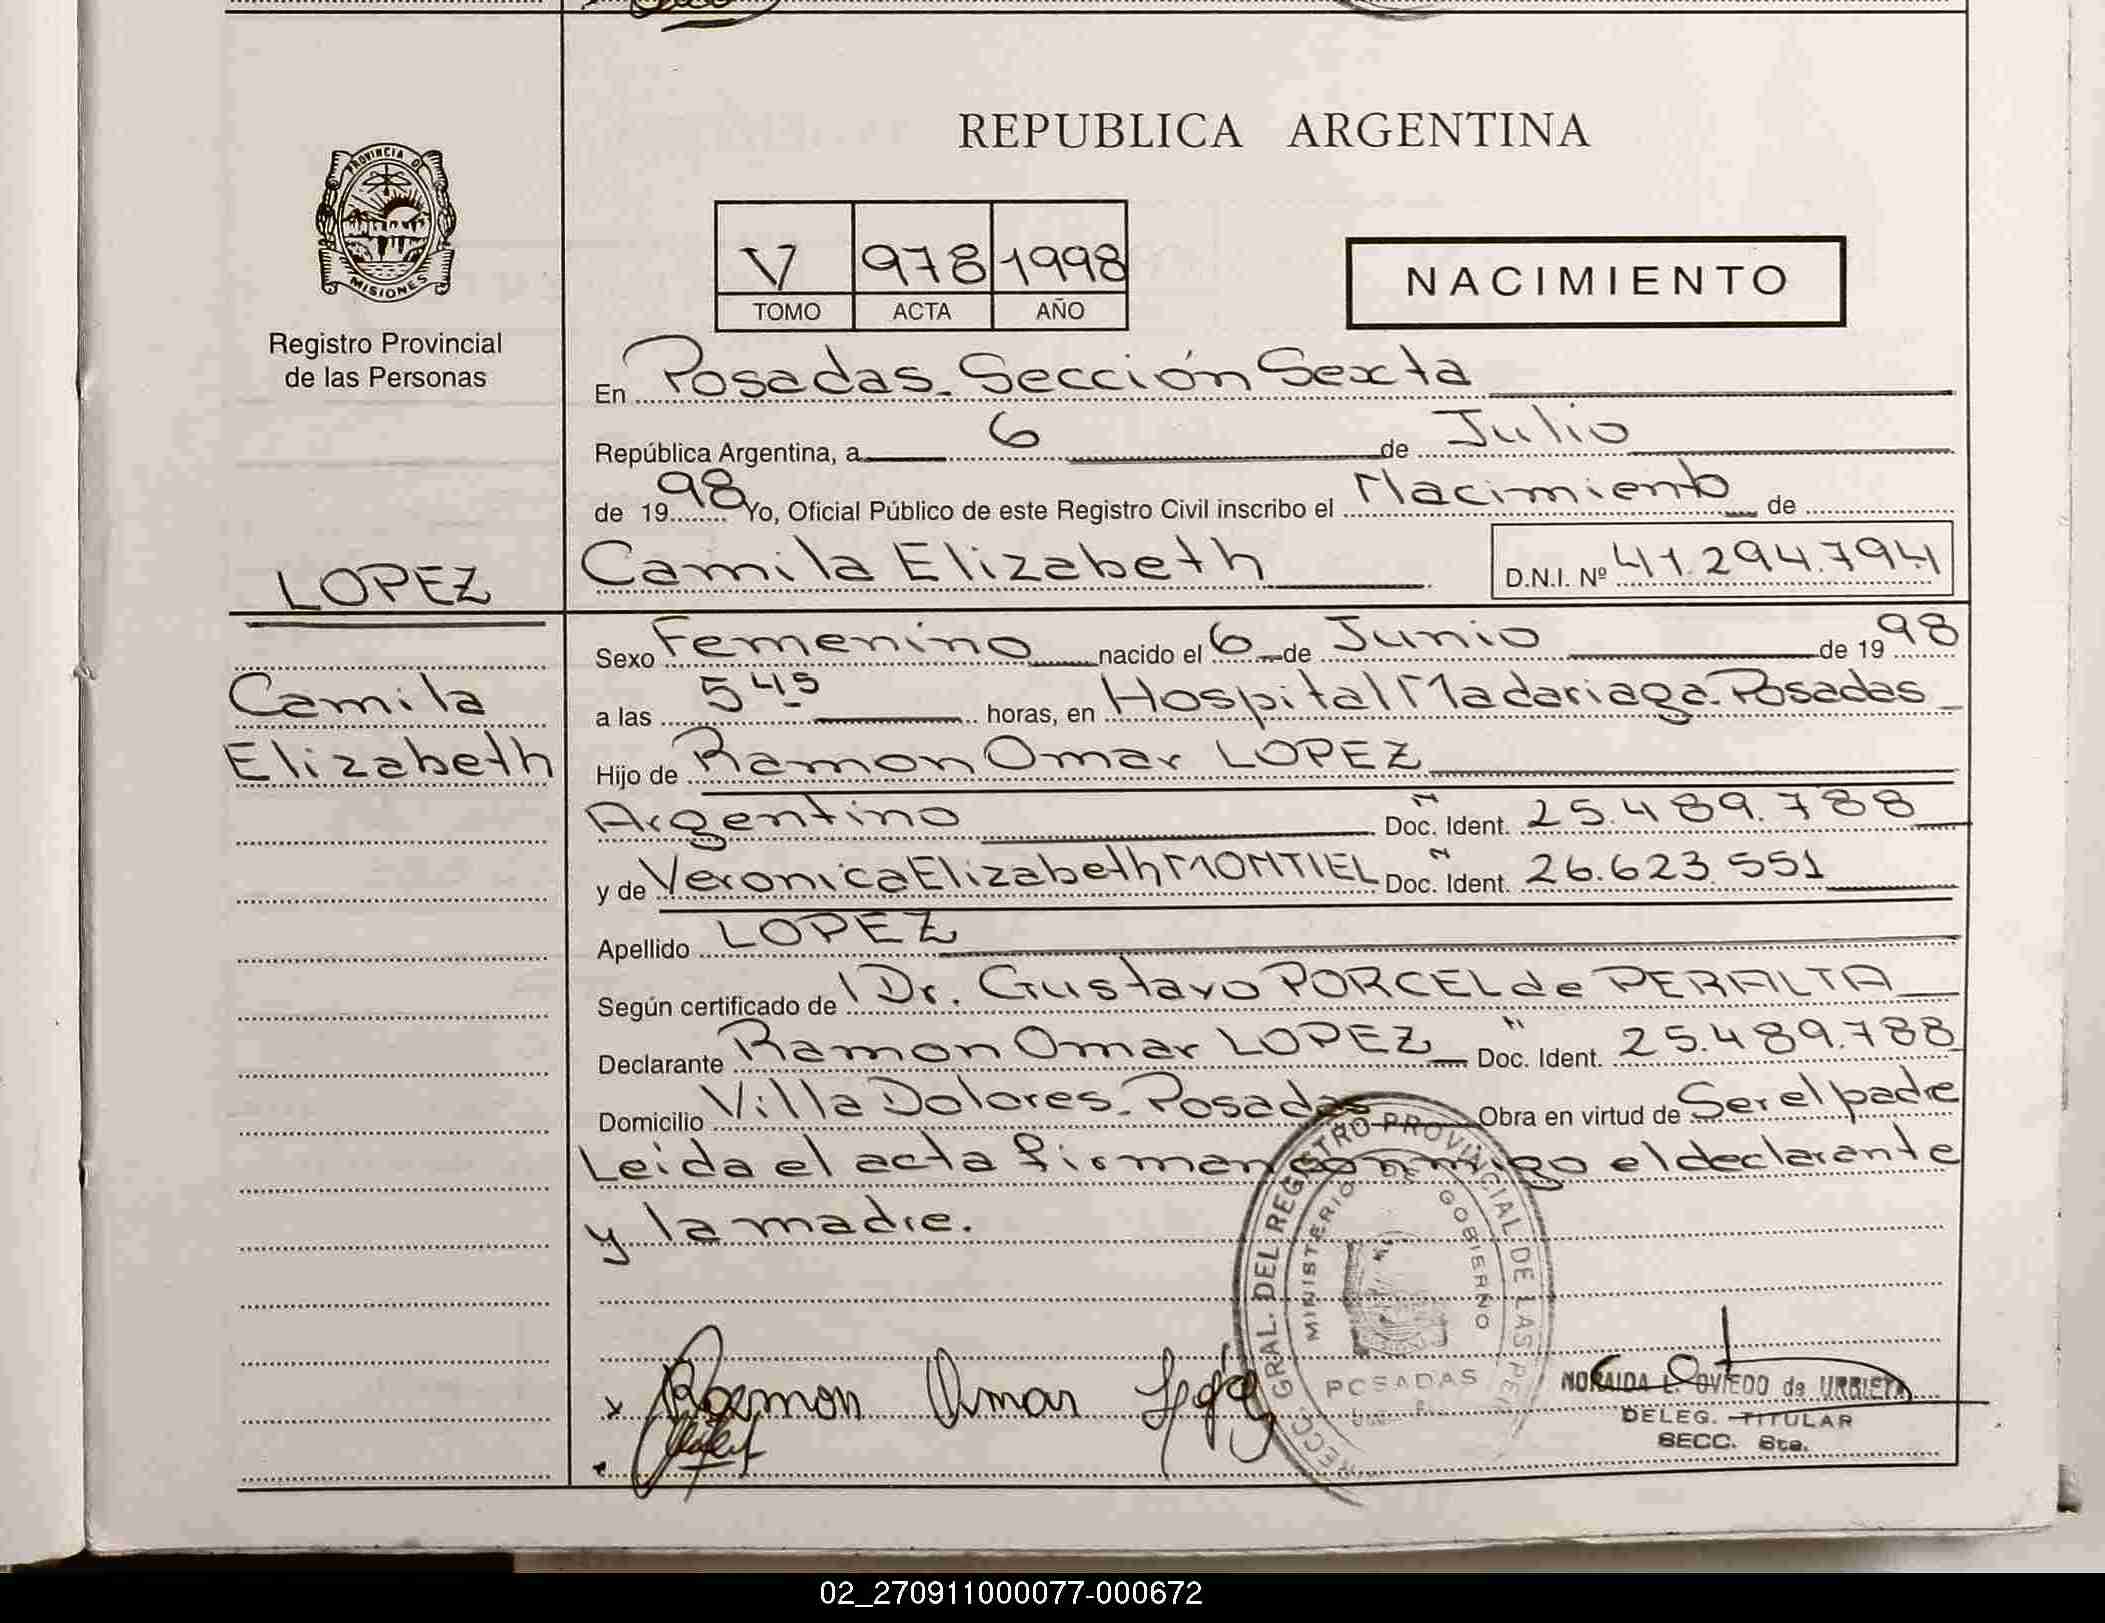 REPUBLICA ARGENTINA
PROVINCIA DE
MISIONES
Registro Provincial
de las Personas
V 978 1998
TOMO ACTA AÑO
NACIMIENTO
En Posadas. Sección Sexta
República Argentina, a 6 de Julio
de 1998 Yo, Oficial Público de este Registro Civil inscribo el Nacimiento de
LOPEZ
Camila Elizabeth D.N.I. Nº 41.294.794
Camila
Elizabeth
Sexo Femenino nacido el 6 de Junio de 1998
a las 5 45 horas, en Hospital Madariaga. Posadas
Hijo de Ramon Omar LOPEZ
Argentino Doc. Ident. 25.489.788
y de Veronica Elizabeth MONTIEL Doc. Ident. 26.623.551
Apellido LOPEZ
Según certificado de Dr. Gustavo PORCEL de PERALTA
Declarante Ramon Omar LOPEZ Doc. Ident. 25.489.788
Domicilio Villa Dolores. Posadas Obra en virtud de Ser el padre
Leida el acta firman conmigo el declarante
y la madre.
GRAL. DEL REGISTRO PROVINCIAL DE LAS
MINISTERIO DE GOBIERNO
POSADAS
Ramon Omar
NORAIDA L. OVIEDO de URBIETA
DELEG. TITULAR
SECC. 6ta.
02_270911000077-000672